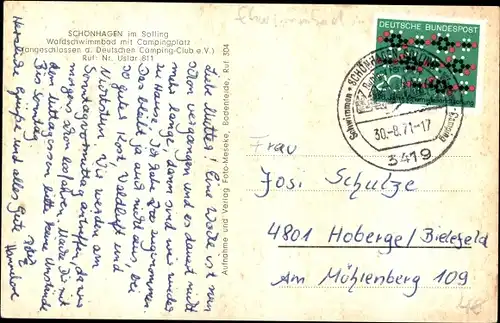 SCHÖNHAGEN im Solling
Waldschwimmbad mit Campingplatz
(angeschlossen a. Deutschen Camping-Club e.V.)
Ruf: Nr. Uslar 811
Schwimmbad
DEUTSCHE BUNDESPOST
Schwimmen
SCHÖNHAGEN
Camping
30.-8.71-17
3419
Aufnahme und Verlag Foto-Meseke, Bodenfelde, Ruf 304
Liebe Mutter! Eine Woche ist nun
schon vergangen und es dauert nicht
mehr lange, dann sind wir wieder
zu Hause. Ich habe zugenommen.
Das bleibt ja auch nicht aus, bei
so guter Kost, Waldluft und
Nichtstun. Wir werden am
Sonntagvormittag eintreffen, da wir
morgens schon losfahren. Mache Dir mit
dem Mittagessen bitte keine Umstände.
Bis Sonntag
Herzliche Grüße und alles Gute
Hannelore
Frau
Josi Schulze
4801 Hoberge/Bielefeld
Am Möhlenberg 109